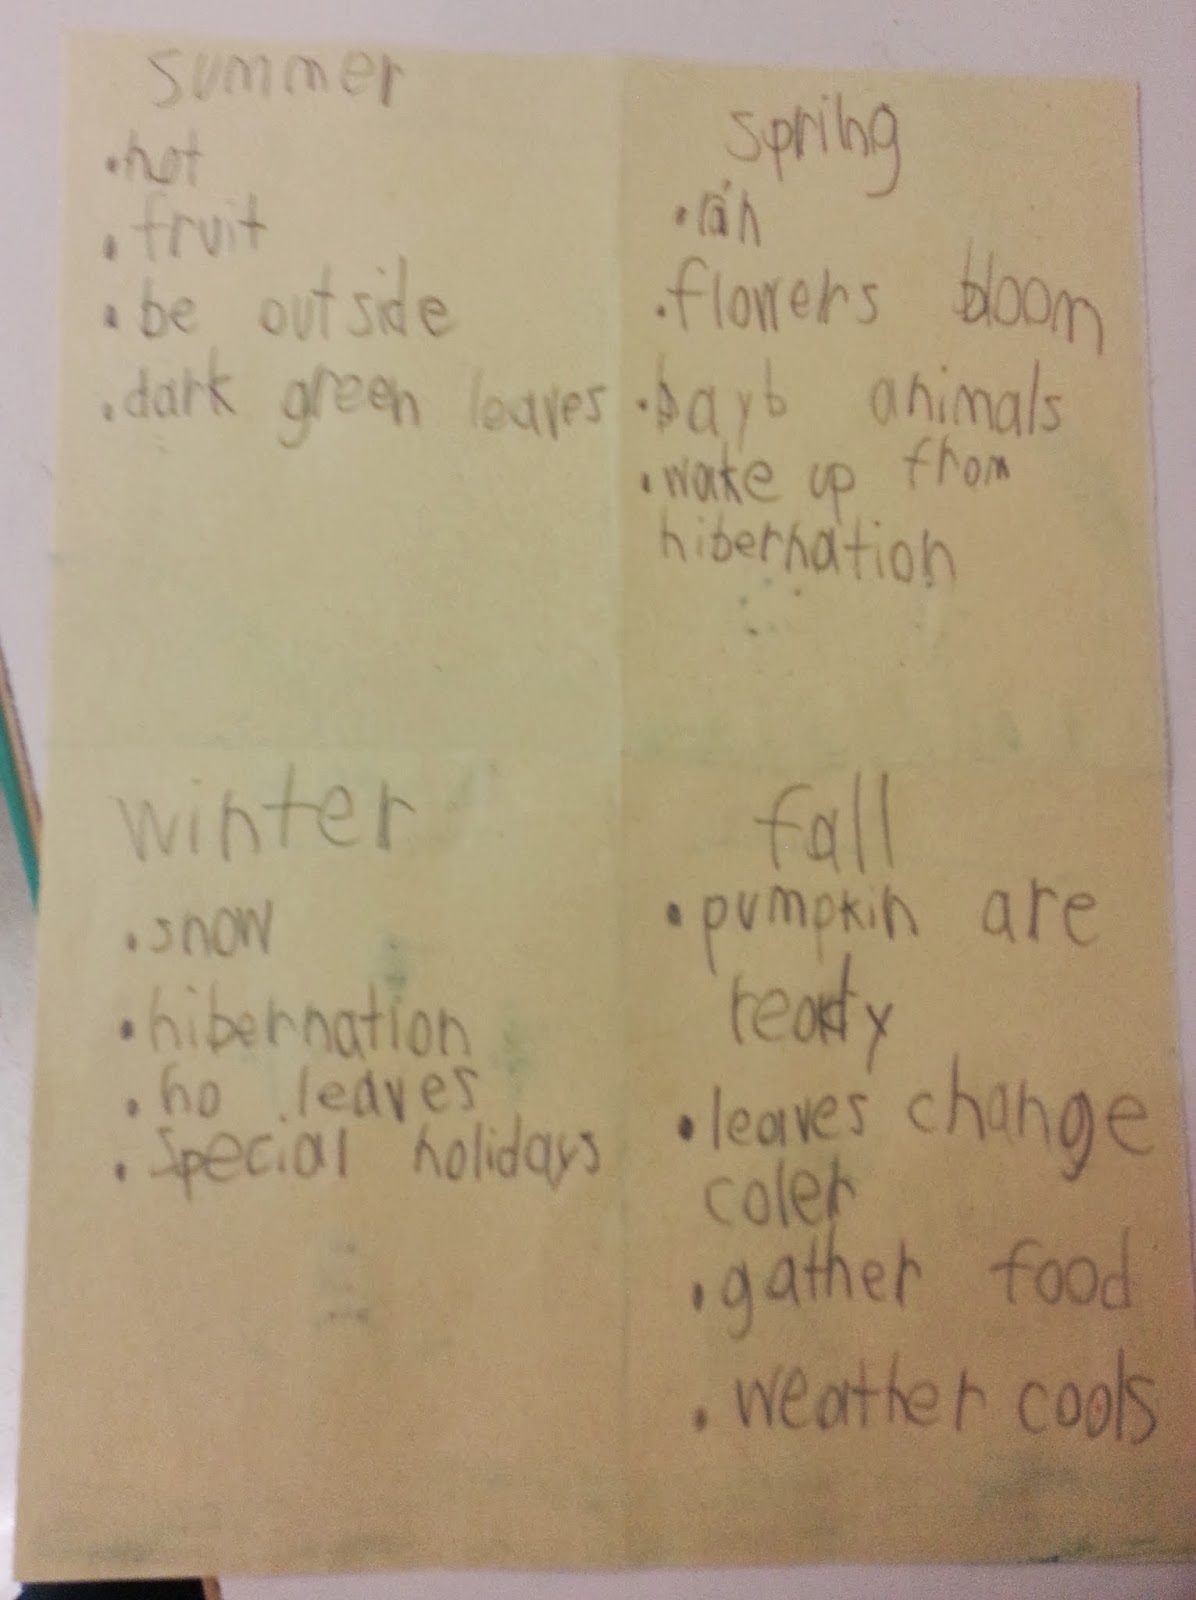 summer
• hot
• fruit
• be outside
• dark green leaves
spring
• rain
• flowers bloom
• bayb animals
• wake up from
hibernation
winter
• snow
• hibernation
• no leaves
• special holidays
fall
• pumpkin are
ready
• leaves change
coler
• gather food
• weather cools